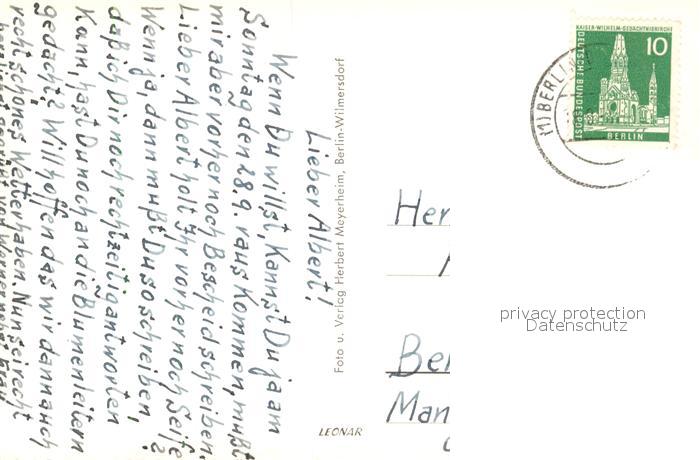 Lieber Albert!
Wenn Du willst, Kannst Du ja am
Sonntag den 28.9. raus Kommen, mußt
mir aber vorher noch Bescheid schreiben.
Lieber Albert holt Ihr vorher noch Seife?
Wenn ja, dann mußt Du so schreiben,
daß ich Dir noch rechtzeitig antworten
Kann, hast Du noch an die Blumenleitern
gedacht? Will hoffen das wir dann auch
recht schönes Wetter haben. Nun sei recht
herzlichst gegrüßt von Werner nebst Frau
Foto u. Verlag Herbert Meyerheim, Berlin-Wilmersdorf
LEONAR
KAISER-WILHELM-GEDÄCHTNISKIRCHE
10
DEUTSCHE BUNDESPOST
BERLIN
(1) BERLIN
Her
Ber
Man
privacy protection
Datenschutz